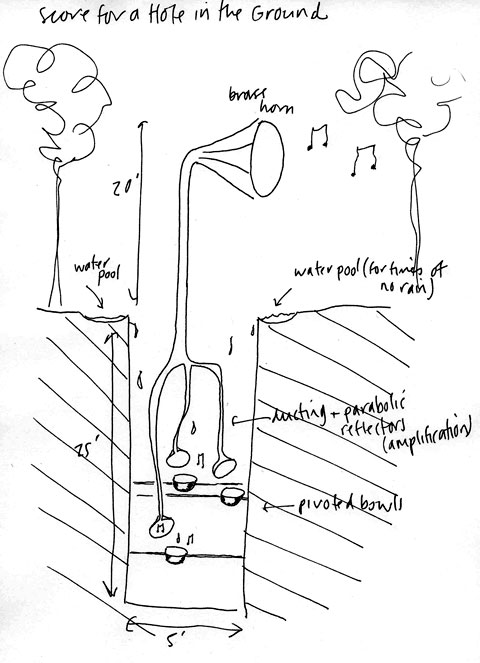 Score for a Hole in the Ground
brass
horn
20'
water
pool
water pool (for times of
no rain)
ducting + parabolic
reflectors
(amplification)
25'
pivoted bowls
5'